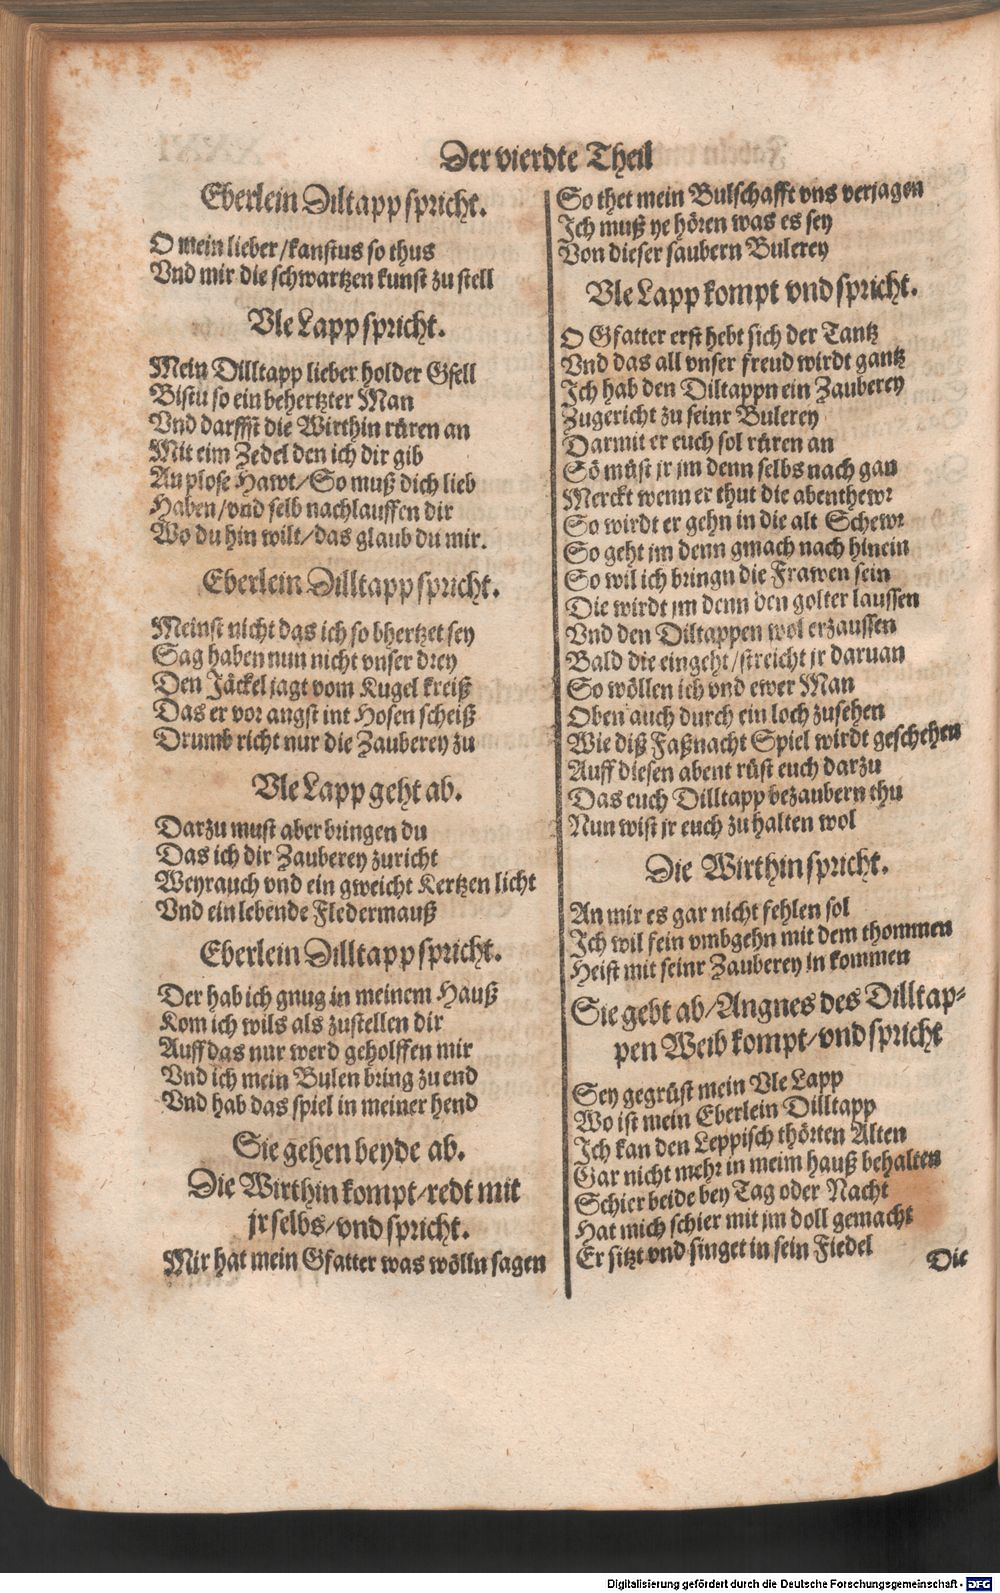 Der vierdte Theil
Eberlein Diltapp spricht.
O mein lieber / kanstus so thus
Vnd mir die schwartzen kunst zu stell
Vle Lapp spricht.
Mein Dilltapp lieber holder Gsell
Bistu so ein behertzter Man
Vnd darffst die Wirthin rüren an
Mit eim Zedel den ich dir gib
An plose Hawt / So muß dich lieb
Haben / vnd selb nachlauffen dir
Wo du hin wilt / das glaub du mir.
Eberlein Dilltapp spricht.
Meinst nicht das ich so bhertzet sey
Sag haben nun nicht vnser drey
Den Jäckel jagt vom Kugel kreiß
Das er vor angst int Hosen scheiß
Drumb richt nur die Zauberey zu
Vle Lapp geht ab.
Darzu must aber bringen du
Das ich dir Zauberey zuricht
Weyrauch vnd ein gweicht Kertzen licht
Vnd ein lebende Fledermauß
Eberlein Dilltapp spricht.
Der hab ich gnug in meinem Hauß
Kom ich wils als zustellen dir
Auff das nur werd geholffen mir
Vnd ich mein Bulen bring zu end
Vnd hab das spiel in meiner hend
Sie gehen beyde ab.
Die Wirthin kompt / redt mit
jr selbs / vnd spricht.
Mir hat mein Gfatter was wölln sagen
So thet mein Bulschafft vns verjagen
Ich muß ye hören was es sey
Von dieser saubern Bulerey
Vle Lapp kompt vnd spricht.
O Gfatter erst hebt sich der Tantz
Vnd das all vnser freud wirdt gantz
Ich hab den Diltappn ein Zauberey
Zugericht zu seinr Bulerey
Darmit er euch sol rüren an
Sö müst jr jm denn selbs nach gan
Merckt wenn er thut die abenthewr
So wirdt er gehn in die alt Schewr
So geht jm denn gmach nach hinein
So wil ich bringn die Frawen sein
Die wirdt jm denn den golter laussen
Vnd den Diltappen wol erzaussen
Bald die eingeht / streicht jr daruan
So wöllen ich vnd ewer Man
Oben auch durch ein loch zusehen
Wie diß Faßnacht Spiel wirdt geschehen
Auff diesen abent rüst euch darzu
Das euch Dilltapp bezaubern thu
Nun wist jr euch zu halten wol
Die Wirthin spricht.
An mir es gar nicht fehlen sol
Ich wil fein vmbgehn mit dem thommen
Heist mit seinr Zauberey in kommen
Sie gebt ab / Angnes des Dilltap-
pen Weib kompt / vnd spricht
Sey gegrüst mein Vle Lapp
Wo ist mein Eberlein Dilltapp
Ich kan den Leppisch thörten Alten
Gar nicht mehr in meim hauß behalten
Schier beide bey Tag oder Nacht
Hat mich schier mit jm doll gemacht
Er sitzt vnd singet in sein Fiedel
Die
Digitalisierung gefördert durch die Deutsche Forschungsgemeinschaft - DFG